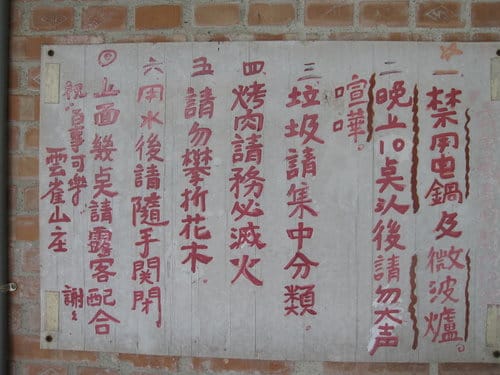 一 禁用电鍋及微波爐。
二 晚上10点以後請勿大声
喧嘩
三 垃圾請集中分類。
四 烤肉請務必滅火
五 請勿攀折花木
六 用水後請隨手関閉
◎上面幾点請露客配合
祝：百事可樂 謝々
雲雀山庄